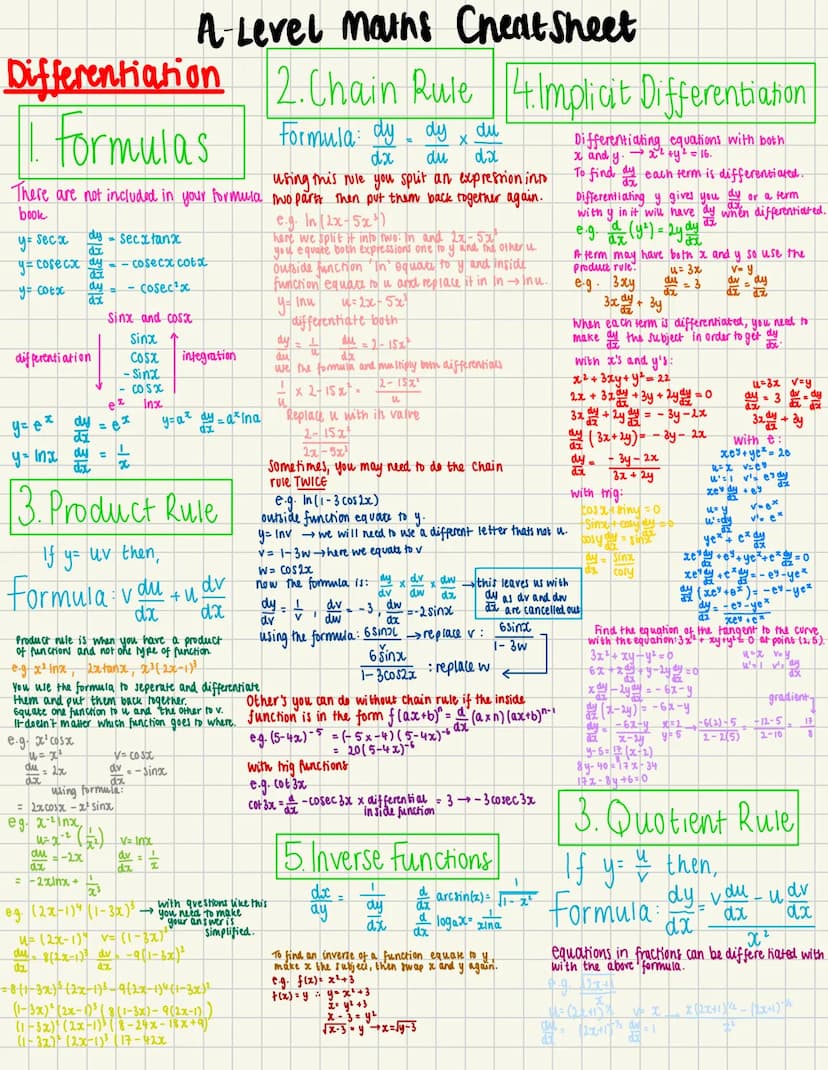 A-Level Maths Cheatsheet
Differentiation
1. Formulas
There are not included in your formula
book
y=secx dy/dx = secxtanx
y=cosecx dy/dx = -cosecxcotx
y=cotx dy/dx = -cosec²x
Sinx and cosx
differentiation
Sinx
Cosx
-Sinx
-cosx
integration
eˣ lnx
y=eˣ dy/dx = eˣ
y=aˣ dy/dx = aˣlna
y=lnx dy/dx = 1/x
3. Product Rule
If y= uv then,
Formula: v du/dx + u dv/dx
Product rule is when you have a product
of functions and not one type of function
e.g x²lnx, 2xtanx, x³(2x-1)³
You use the formula to seperate and differentiate
them and put them back together.
Equate one function to u and the other to v.
It doesn't matter which function goes to where.
e.g. x²cosx
u = x² v= cosx
du/dx = 2x dv/dx = -sinx
using formula:
= 2xcosx - x²sinx
eg. x⁻²lnx
u= x⁻² (1/x²) v= lnx
du/dx = -2x dv/dx = 1/x
= -2xlnx + 1/x³
eg. (2x-1)⁴ (1-3x)³ → with questions like this
you need to make
your answer is
simplified.
u= (2x-1)⁴ v= (1-3x)³
du/dx = 8(2x-1)³ dv/dx = -9(1-3x)²
= 8(1-3x)³(2x-1)³ - 9(2x-1)⁴(1-3x)²
(1-3x)²(2x-1)³(8(1-3x)-9(2x-1))
(1-3x)²(2x-1)³(8-24x-18x+9)
(1-3x)²(2x-1)³(17-42x
2. Chain Rule
Formula: dy/dx = dy/du × du/dx
Using this rule you split an expression into
two parts then put them back together again.
e.g. ln(2x-5x³)
here we split it into two: ln and 2x-5x³
you equate both expressions one to y and the other u
outside function 'ln' equate to y and inside
function equate to u and replace it in ln → lnu.
y= lnu u= 2x-5x³
differentiate both
dy/du = 1/u du/dx = 2-15x²
use the formula and multiply both differentials
1/u × 2-15x² = 2-15x²/u
Replace u with its value
2-15x²/2x-5x³
Sometimes, you may need to do the chain
rule TWICE
e.g. ln(1-3cos2x)
outside function equate to y.
y= lnv → we will need to use a different letter thats not u.
v = 1-3w → here we equate to v
w= cos2x
now the formula is: dy/dv × dv/dw × dw/dx → this leaves us with
dy/dx as dv and dw
are cancelled out
dy/dx = 1/v, dv/dw = -3, dw/dx = -2sinx
using the formula: 6sinx/v → replace v: 6sinx/1-3w
6sinx/1-3cos2x : replace w
Other's you can do without chain rule if the inside
function is in the form f(ax+b)ⁿ = d/dx (axn)(ax+b)ⁿ⁻¹
e.g. (5-4x)⁻⁵ = (-5x-4)(5-4x)⁻⁶
= 20(5-4x)⁻⁶
With trig functions
e.g. cot3x
cot3x = d/dx -cosec3x × differential inside function = 3 → -3cosec3x
5. Inverse Functions
dx/dy = 1/dy/dx
d/dx arcsin(x) = 1/√1-x²
d/dx logax = 1/xlna
To find an inverse of a function equate to y,
make x the subject, then swap x and y again.
e.g. f(x)= x²+3
f(x)=y ∴ y= x²+3
x= y²+3
x-3=y²
√x-3 = y → x=√y-3
4. Implicit Differentiation
Differentiating equations with both
x and y. → x²+y²=16.
To find dy/dx each term is differentiated.
Differentiating y gives you dy/dx or a term
with y in it will have dy/dx when differentiated.
e.g. d/dx (y²) = 2y dy/dx
A term may have both x and y so use the
product rule: u= 3x v= y
e.g. 3xy du/dx = 3 dv/dx = dy/dx
3x dy/dx + 3y
When each term is differentiated, you need to
make dy/dx the subject in order to get dy/dx.
With x's and y's:
x²+3xy+y²=22 u=3x v=y
2x + 3x dy/dx + 3y + 2y dy/dx = 0 du/dx = 3 dv/dx = dy/dx
3x dy/dx + 2y dy/dx = -3y-2x 3x dy/dx + 3y
dy/dx (3x+2y) = -3y-2x
dy/dx = -3y-2x/3x+2y
with trig:
cosx+siny=0
-Sinx+cosy dy/dx =0
cosy dy/dx = sinx
dy/dx = sinx/cosy
With e:
xeʸ+yeˣ=20
u=x v=eʸ
u'=1 v'=eʸ dy/dx
xeʸ dy/dx + eʸ
u=y v=eˣ
u'=dy/dx v'=eˣ
yeˣ + eˣ dy/dx
xeʸ dy/dx + eʸ + yeˣ + eˣ dy/dx = 0
xeʸ dy/dx + eˣ dy/dx = -eʸ-yeˣ
dy/dx (xeʸ+eˣ) = -eʸ-yeˣ
dy/dx = -eʸ-yeˣ/xeʸ+eˣ
Find the equation of the tangent to the curve
with the equation: 3x²+xy+y²=0 at point (2,5).
3x²+xy-y²=0 u=x v=y
6x+x dy/dx + y-2y dy/dx = 0 u'=1 v'=dy/dx
x dy/dx - 2y dy/dx = -6x-y
dy/dx (x-2y) = -6x-y gradient
dy/dx = -6x-y/x-2y x=2 y=5 → -6(2)-5/2-2(5) = -12-5/2-10 = 17/8
y-5=17/8(x-2)
8y-40=17x-34
17x-8y+6=0
3. Quotient Rule
If y= u/v then,
Formula: dy/dx = v du/dx - u dv/dx / x²
equations in fractions can be differetiated with
with the above formula.
e.g √2x+1/x
u= (2x+1)^½ v= x → x(2x+1)^½ - (2x+1)^-½/x²
du/dx = (2x+1)^-½ dv/dx = 1